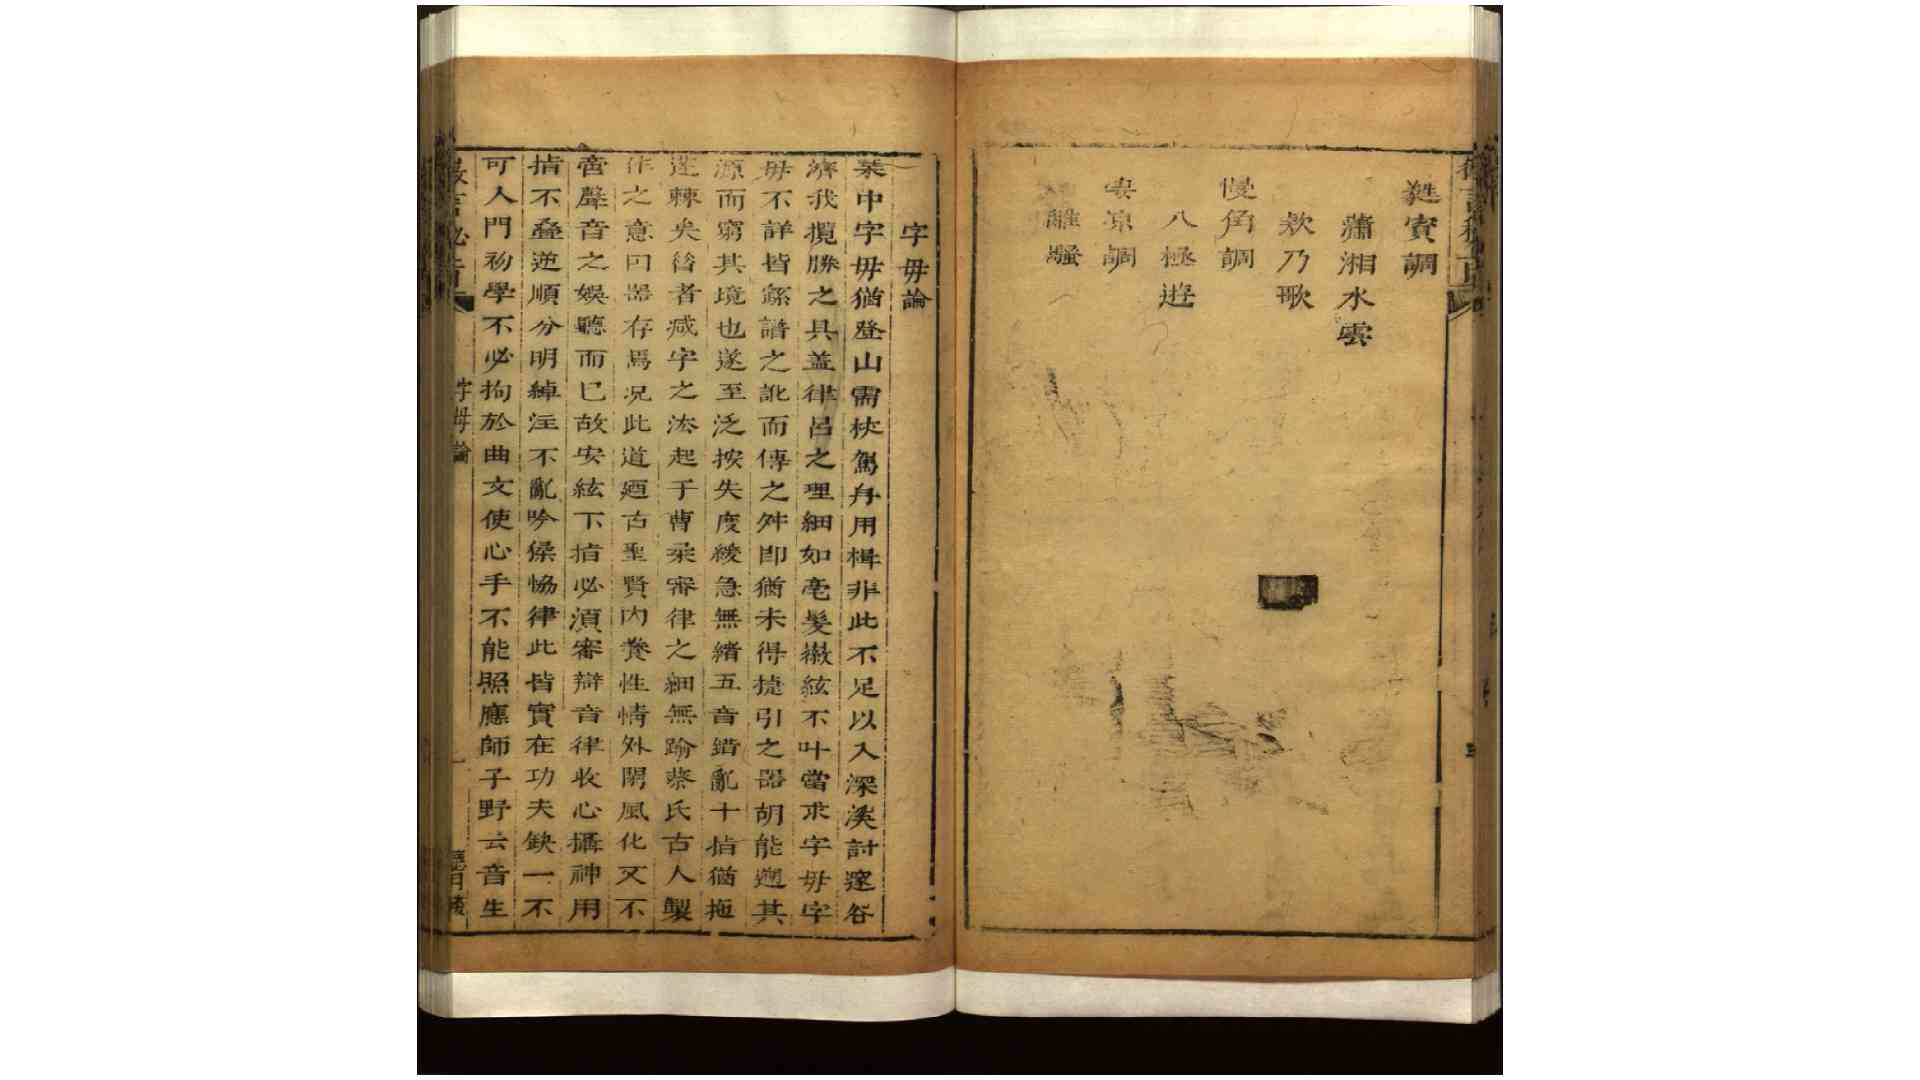 蕤賓調
瀟湘水雲
欸乃歌
慢角調
八極遊
凄涼調
離騷
字毋論
琴中字毋猶登山需杖駕舟用楫非此不足以入深溪討邃谷
濟我攬勝之具蓋律呂之理細如毫髮徽絃不叶當求字毋字
毋不詳皆繇譜之訛而傳之舛即猶未得捷引之器胡能遡其
源而窮其境也遂至泛按失度緩急無緒五音錯亂十指猶拖
蓬棘矣昔者减字之法起于曹柔審律之細無踰蔡氏古人製
作之意曰器存焉况此道廼古聖賢內養性情外閑風化又不
啻聲音之娛聽而已故安絃下指必須審辯音律收心攝神用
指不叠逆順分明綽注不亂吟猱恊律此皆實在功夫缺一不
可人門初學不必拘於曲文使心手不能照應師子野云音生
徽言必旨
字毋論